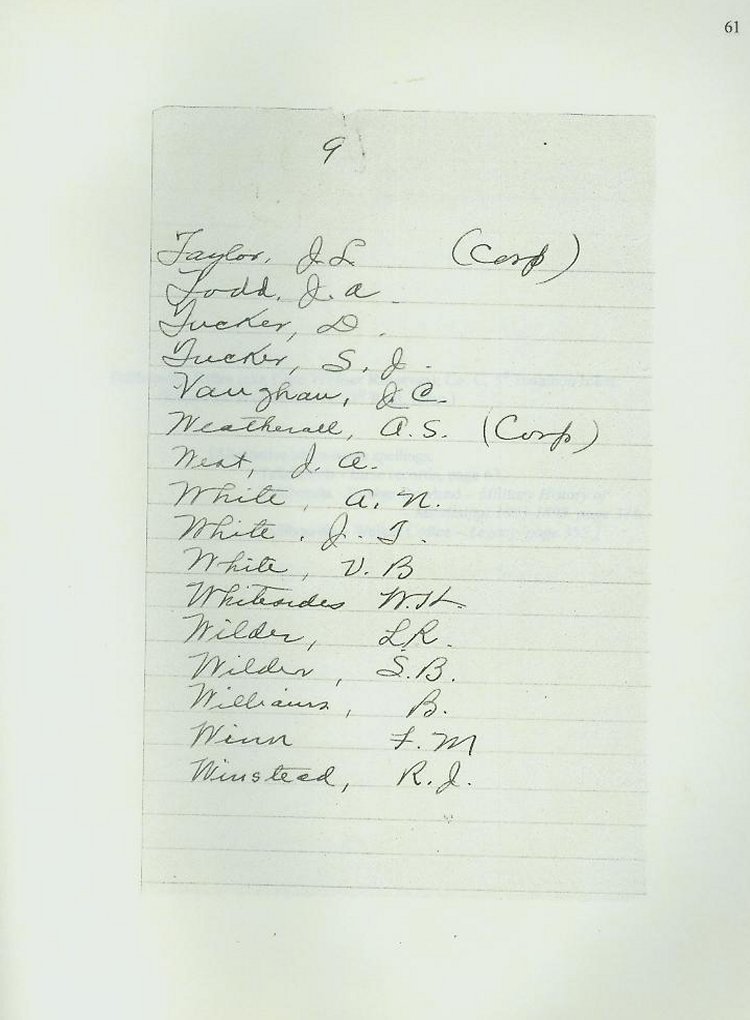 61
9
Taylor, J. L. (Corp)
Todd, J. A.
Tucker, D.
Tucker, S. J.
Vaughan, J. C.
Weatherall, A. S. (Corp)
West, J. A.
White, A. N.
White, J. T.
White, V. B
Whitesides W. H.
Wilder, L. R.
Wilder, S. B.
Williams, B.
Winn F. M
Winstead, R. J.